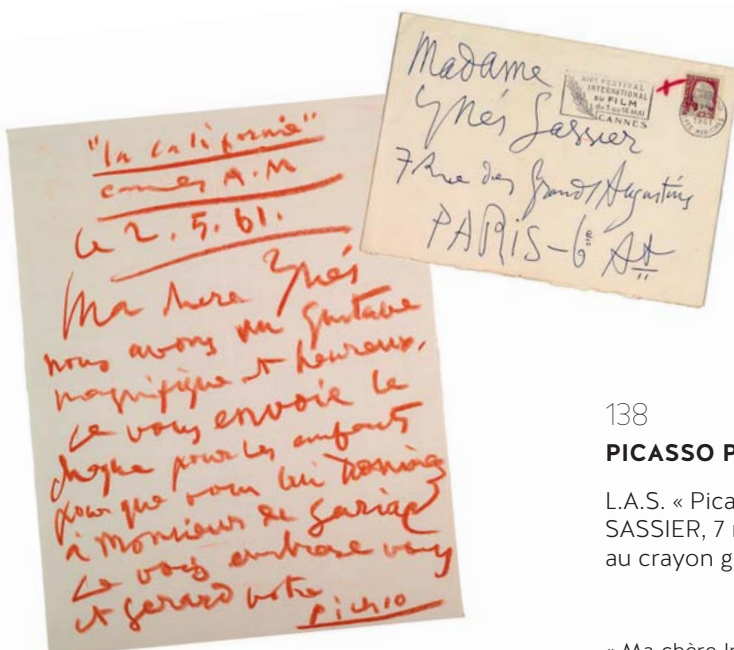 "la californie"
cannes A.M
le 2.5.61.
Ma chere Ynés
nous avons vu Gustave
magnifique et heureux.
Je vous envoie le
cheque pour les enfants
pour que vous lui donniez
à Monsieur de Sariac
Je vous embrasse vous
et gerard votre
Picasso
Madame
Ynés Sassier
7 Rue des Grands Augustins
PARIS-6e Ar
FESTIVAL
INTERNATIONAL
DU FILM
du 3 au 18 MAI
CANNES
1961
138
PICASSO P
L.A.S. « Pica
SASSIER, 7 r
au crayon g
« Ma chère I